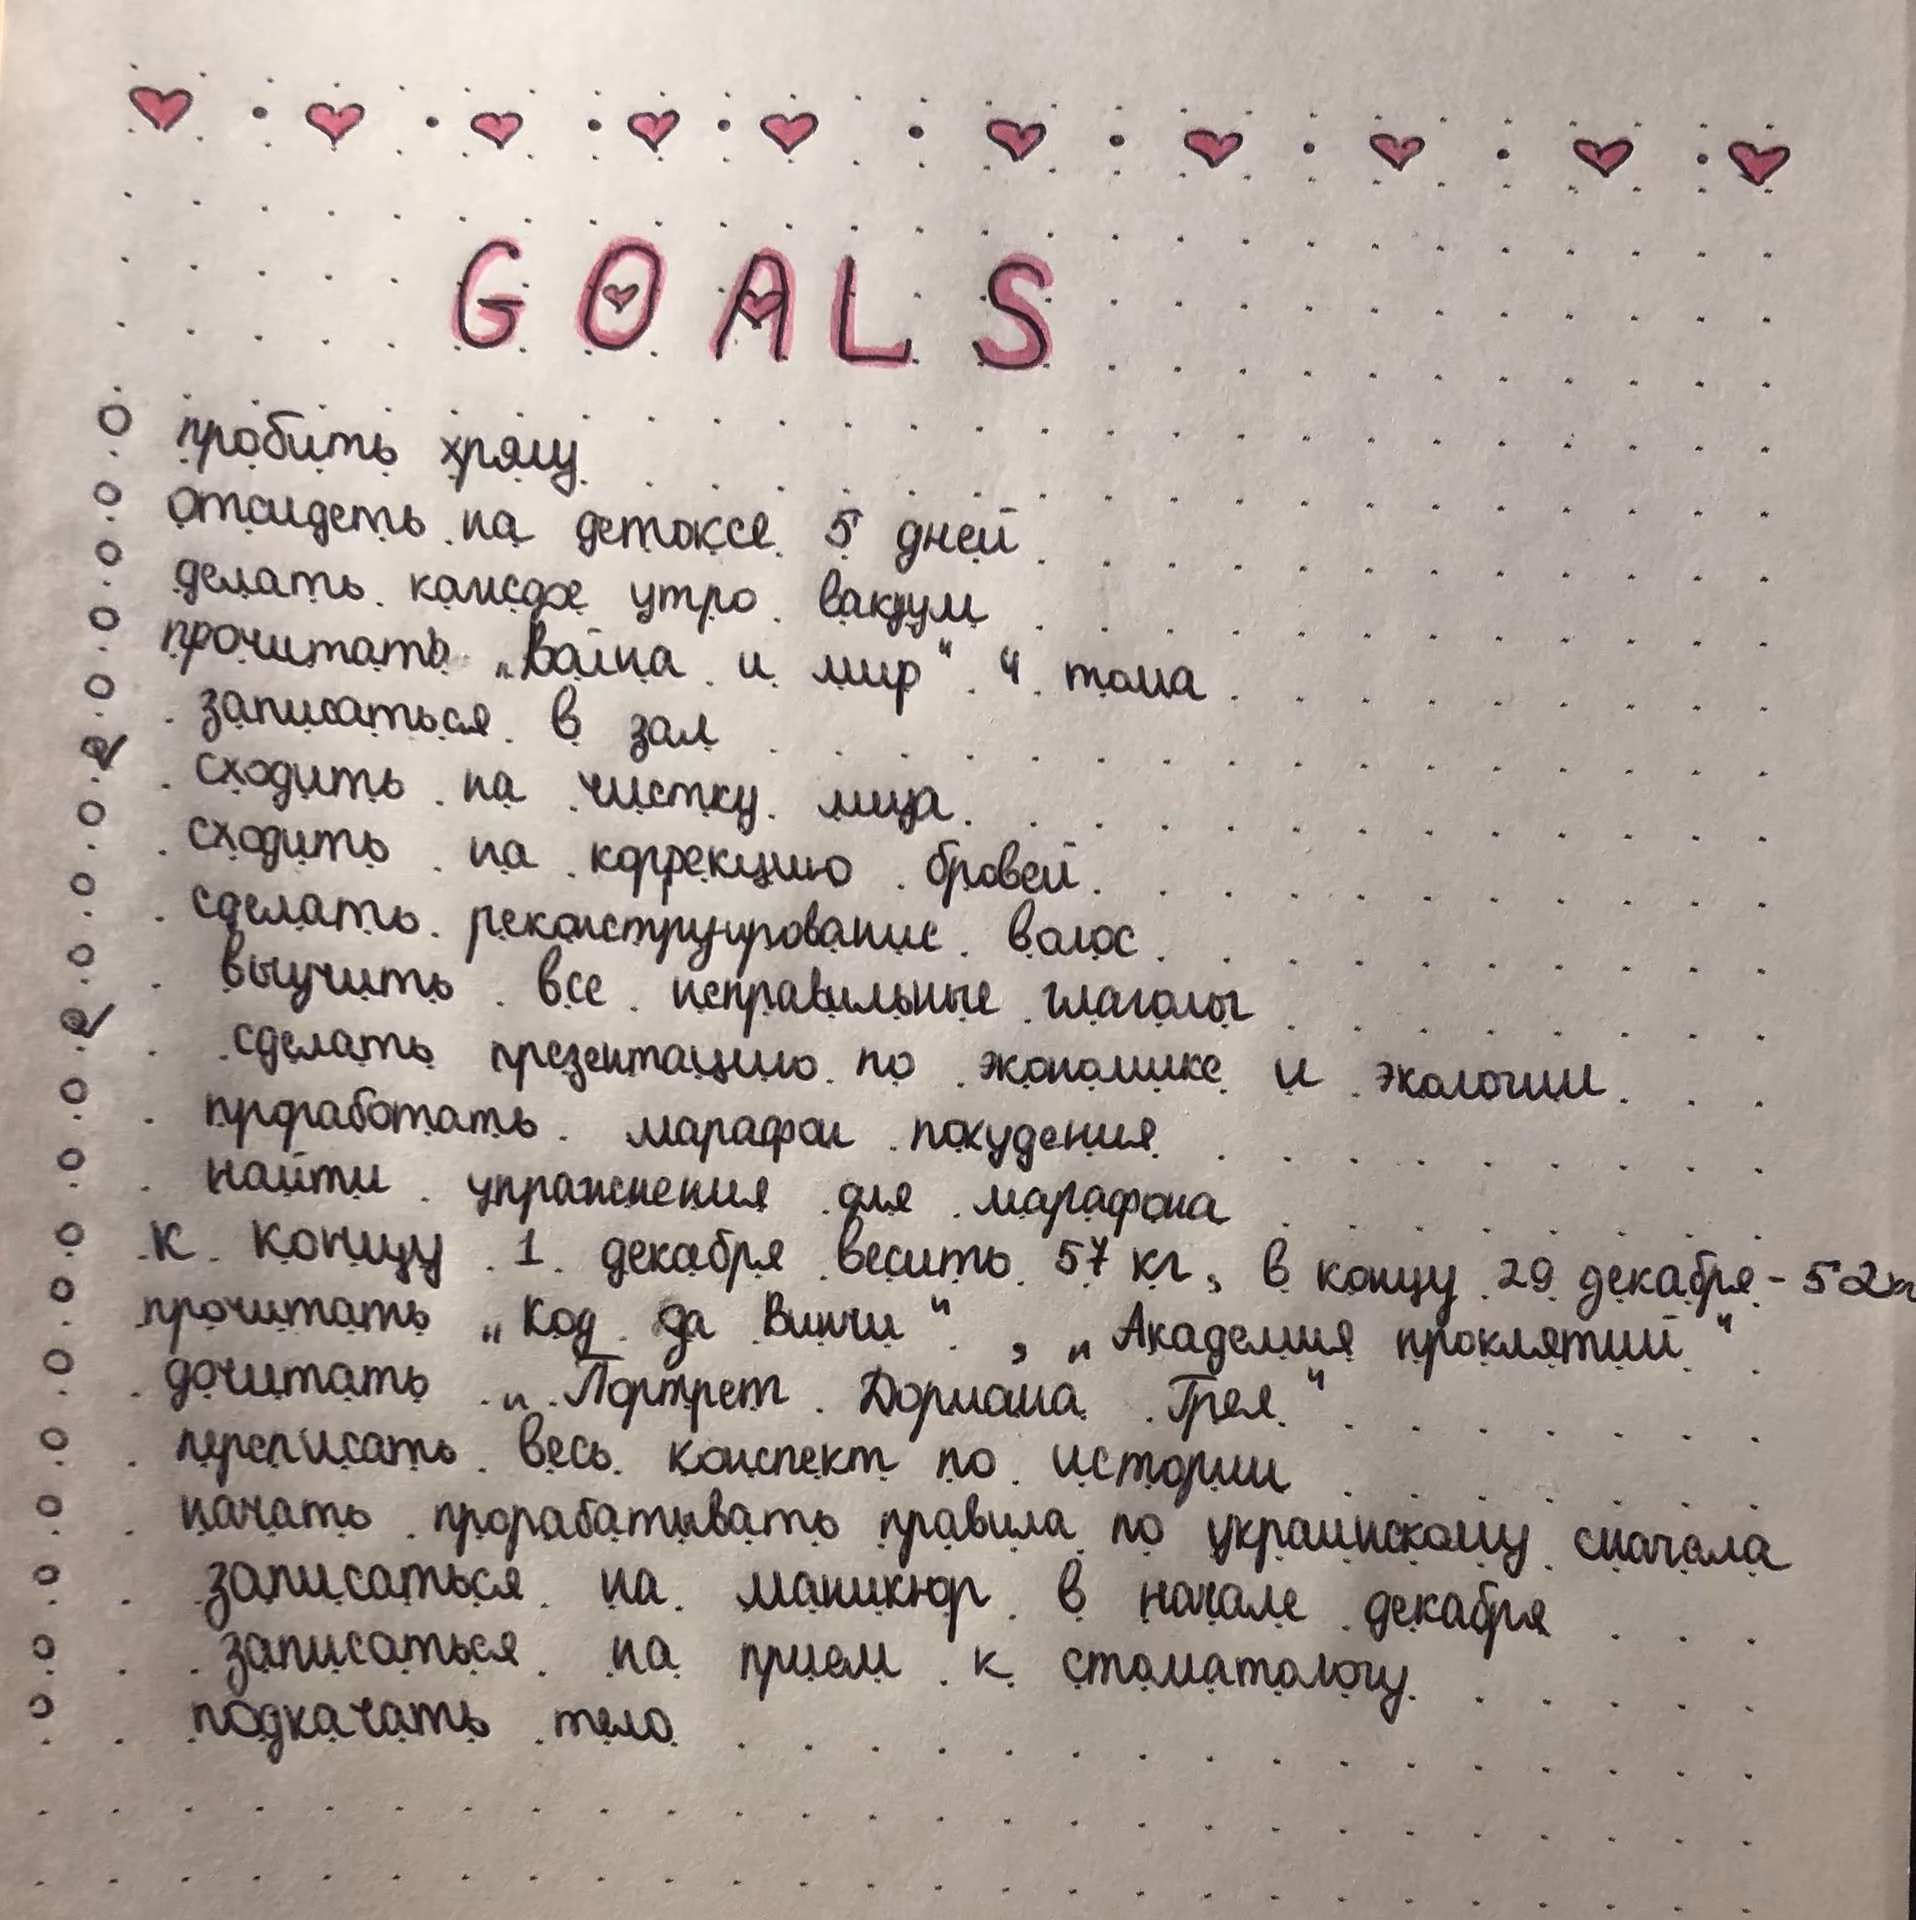 GOALS
пробить хрящ
отсидеть на детоксе 5 дней
делать каждое утро вакуум
прочитать „Война и мир“ 4 тома
записаться в зал
сходить на чистку лица
сходить на коррекцию бровей
сделать реконструирование волос
выучить все неправильные глаголы
сделать презентацию по экономике и экологии
проработать марафон похудения
найти упражнения для марафона
к концу 1 декабря весить 57 кг, в концу 29 декабря - 52кг
прочитать „Код да Винчи“, „Академия проклятий“
дочитать „Портрет Дориана Грея“
переписать весь конспект по истории
начать прорабатывать правила по украинскому сначала
записаться на маникюр в начале декабря
записаться на прием к стоматологу
подкачать тело